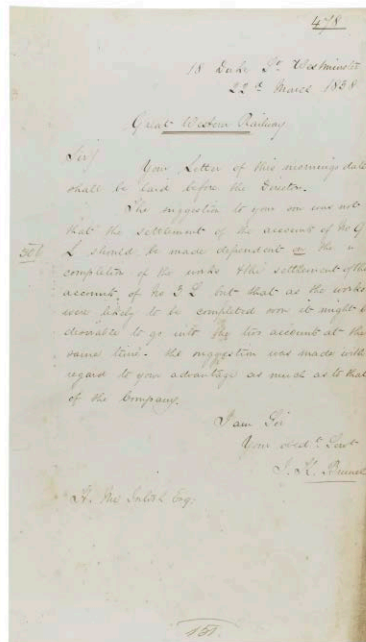 478
18 Duke St. Westminster
22d. March 1838
Great Western Railway
Sir
Your Letter of this mornings date
shall be laid before the Director.
The suggestion to your son was not
that the settlement of the account of No
L should be made dependent on the
completion of the works & the settlement of the
account of No 3 L but that as the works
were likely to be completed soon it might
desirable to go into the two account at the
same time. the suggestion was made with
regard to your advantage as much as to that
of the Company.
I am Sir
Your obedt. Servt
I. K. Brunel
H. Mc Intosh Esq.
151